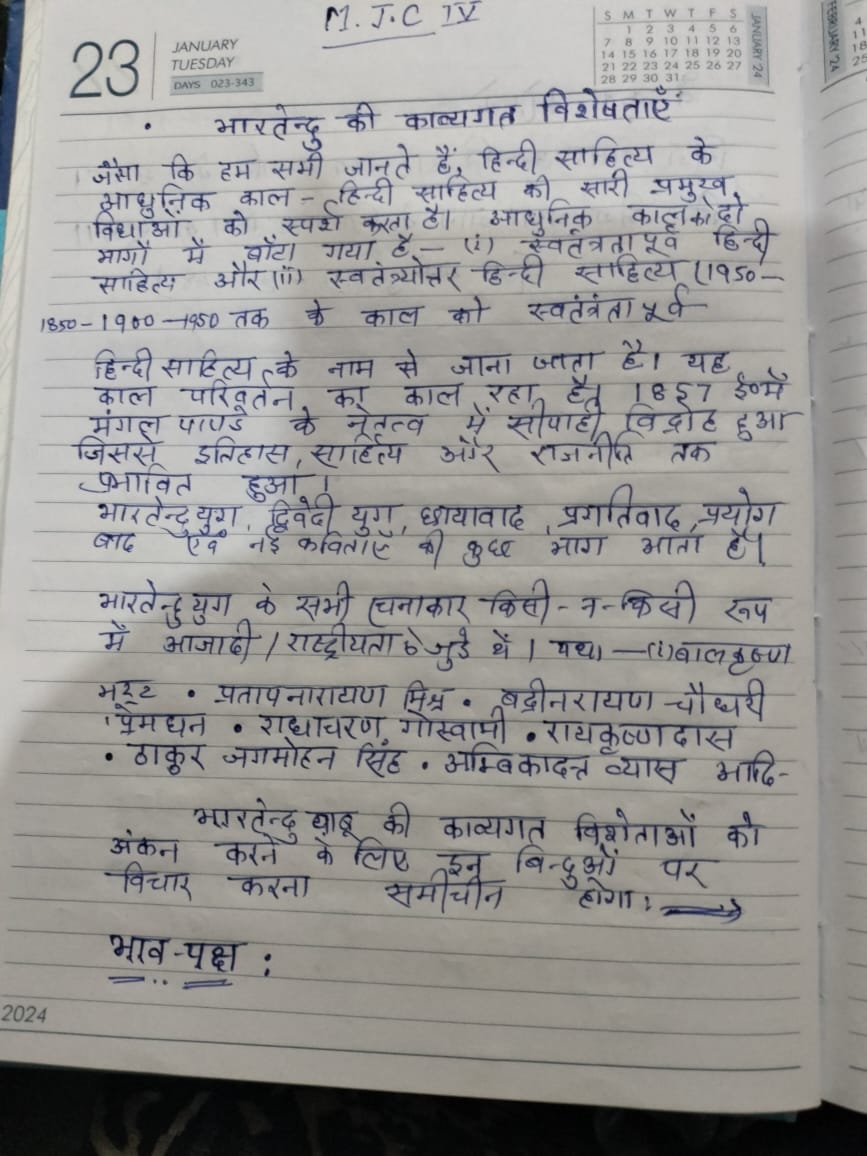 M.J.C IV
23
JANUARY
TUESDAY
DAYS 023-343
S M T W T F S
1 2 3 4 5 6
7 8 9 10 11 12 13
14 15 16 17 18 19 20
21 22 23 24 25 26 27
28 29 30 31
JANUARY '24
FEBRUARY '24
• भारतेन्दु की काव्यगत विशेषताएँ
जैसा कि हम सभी जानते हैं, हिन्दी साहित्य के
आधुनिक काल - हिन्दी साहित्य की सारी प्रमुख
विधाओं को स्पर्श करता है। आधुनिक काल को दो
भागों में बाँटा गया है — (i) स्वतंत्रता पूर्व हिन्दी
साहित्य और (ii) स्वतंत्र्योत्तर हिन्दी साहित्य (1950 —
1850 - 1900 - 1950 तक के काल को स्वतंत्रंता पूर्व
हिन्दी साहित्य के नाम से जाना जाता है। यह
काल परिवर्तन का काल रहा है। 1857 ई० में
मंगल पाण्डे के नेतृत्व में सीपाही विद्रोह हुआ
जिससे इतिहास, साहित्य और राजनीति तक
प्रभावित हुआ।
भारतेन्दु युग, द्विवेदी युग, छायावाद, प्रगतिवाद, प्रयोग
वाद एवं नई कविताएं की कुछ भाग आता है।
भारतेन्दु युग के सभी रचनाकार किसी-न-किसी रूप
में आजादी / राष्ट्रीयता से जुडे थें। यथा — (i) बालकृष्ण
भट्ट • प्रतापनारायण मिश्र • बद्रीनरायण चौधरी
'प्रेमधन • राधाचरण गोस्वामी • रायकृष्णदास
• ठाकुर जगमोहन सिंह • अम्बिकादत्त व्यास आदि-
भारतेन्दु बाबू की काव्यगत विशेताओं को
अंकन करने के लिए इन बिन्दुओं पर
विचार करना समीचीन होगा:
भाव-पक्ष :
2024